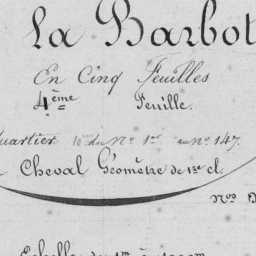 La Barbot
En Cinq Feuilles
4ème Feuille.
uartier du No 1er au no 147.
Cheval Géomètre de 1re cl.
nos
Echelle de